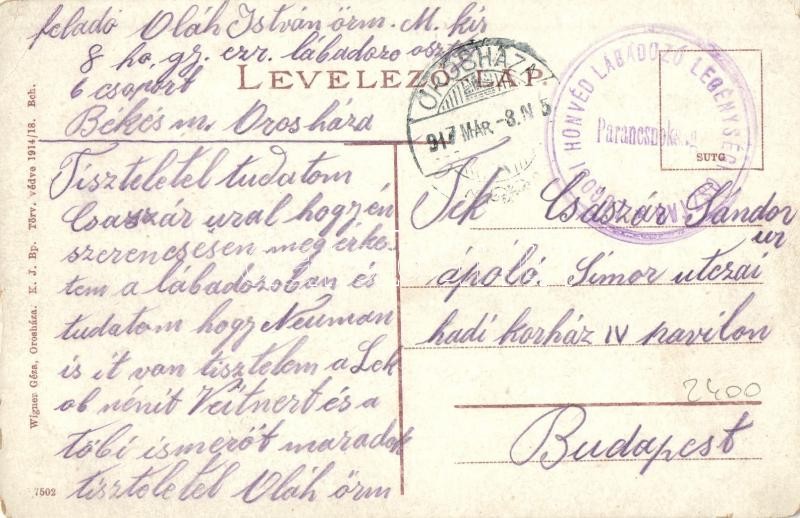 feladó Oláh István őrm. M. kir
8 ho. gy. ezr. lábadozo osz
6 csoport
Békés m. Orosháza
LEVELEZŐ-LAP.
OROSHÁZA
917 MÁR -8. N 5
HONVÉD LÁBADOZÓ LEGÉNYSÉGI
Parancsnokság
SUTG
Tiszteletel tudatom
Csaszár urat hogy én
szerencsésen meg érke
tem a lábadozoban és
tudatom hogy Neuman
is it van tisztelem a Lek
ob nénit Veitnert és a
töbi ismerőt maradok
tisztelétel Oláh őrm
Tek Csaszár Sándor
ur
ápoló. Simor utczai
hadi korház IV pavilon
Budapest
2400
Wigner Géza, Orosháza. K. J. Bp. Törv. védve 1914/18. Bch.
7502